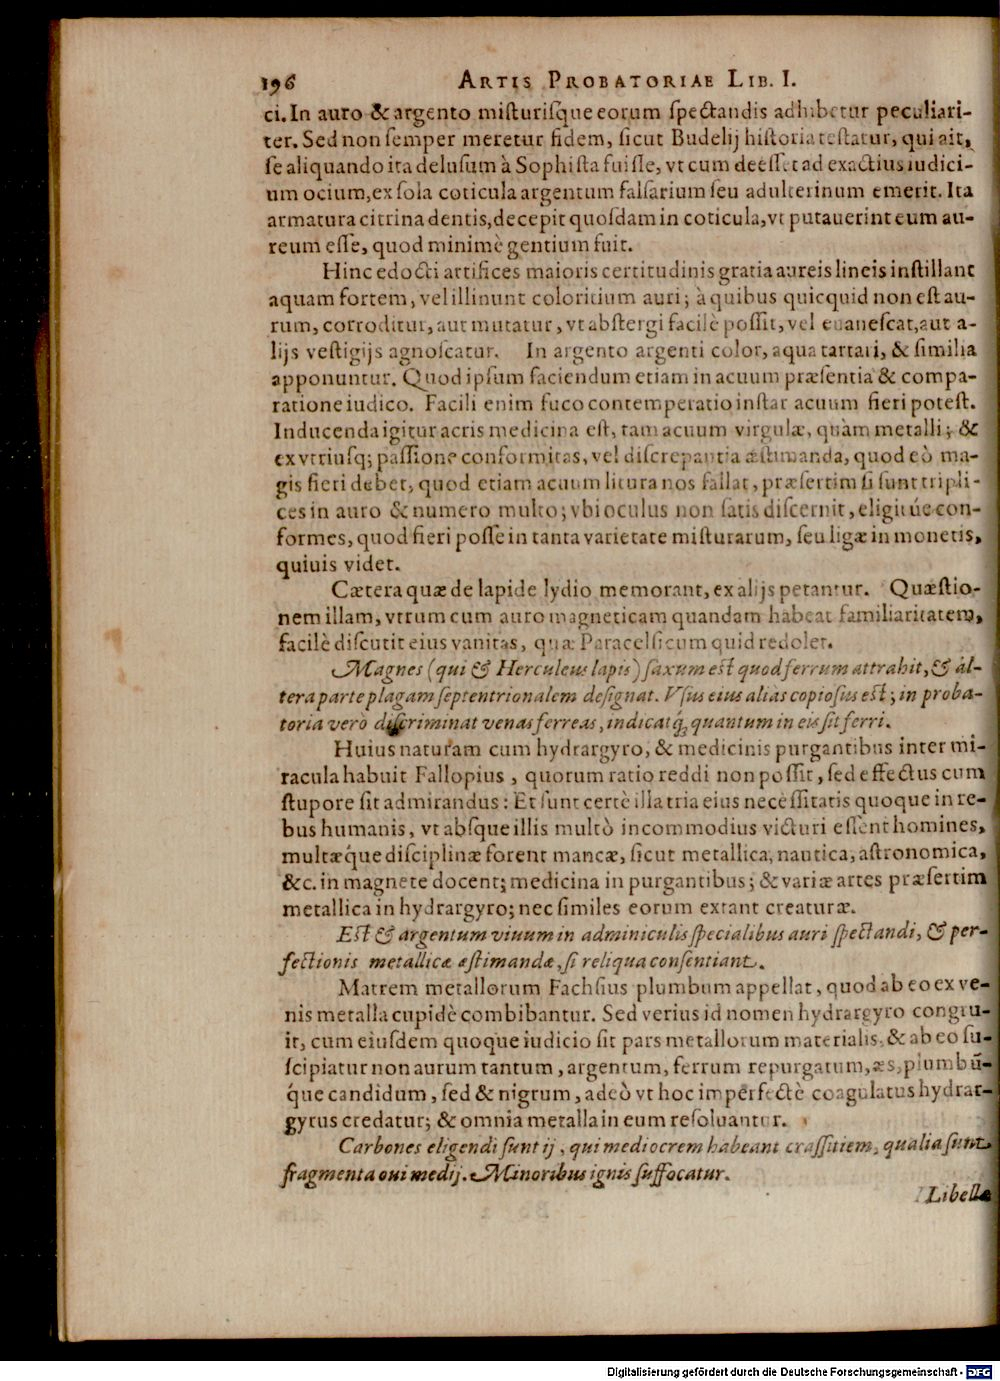 196 ARTIS PROBATORIAE LIB. I.
ci. In auro & argento misturisque eorum spectandis adhibetur peculiari-
ter. Sed non semper meretur fidem, sicut Budelij historia testatur, qui ait,
se aliquando ita delusum à Sophista fuisse, vt cum deesset ad exactius iudici-
um ocium, ex sola coticula argentum falsarium seu adulterinum emerit. Ita
armatura citrina dentis, decepit quosdam in coticula, vt putauerint eum au-
reum esse, quod minimè gentium fuit.
Hinc edocti artifices maioris certitudinis gratia aureis lineis instillant
aquam fortem, vel illinunt coloritium auri; à quibus quicquid non est au-
rum, corroditur, aut mutatur, vt abstergi facilè possit, vel euanescat, aut a-
lijs vestigijs agnoscatur. In argento argenti color, aqua tartari, & similia
apponuntur. Quod ipsum faciendum etiam in acuum præsentia & compa-
ratione iudico. Facili enim fuco contemperatio instar acuum fieri potest.
Inducenda igitur acris medicina est, tam acuum virgulæ, quàm metalli; &
ex vtriusq; passione conformitas, vel discrepantia æstimanda, quod eò ma-
gis fieri debet, quod etiam acuum litura nos fallat, præsertim si sunt tripli-
ces in auro & numero multo; vbi oculus non satis discernit, eligitúe con-
formes, quod fieri posse in tanta varietate misturarum, seu ligæ in monetis,
quiuis videt.
Cætera quæ de lapide lydio memorant, ex alijs petantur. Quæstio-
nem illam, vtrum cum auro magneticam quandam habeat familiaritatem,
facilè discutit eius vanitas, quæ Paracelsicum quid redolet.
Magnes (qui & Herculeus lapis) saxum est quod ferrum attrahit, & al-
tera parte plagam septentrionalem designat. Vsus eius aliàs copiosus est; in proba-
toria verò discriminat venas ferreas, indicatq́; quantum in eis sit ferri.
Huius naturam cum hydrargyro, & medicinis purgantibus inter mi-
racula habuit Fallopius, quorum ratio reddi non possit, sed effectus cum
stupore sit admirandus: Et sunt certè illa tria eius necessitatis quoque in re-
bus humanis, vt absque illis multò incommodius victuri essent homines,
multæq́ue disciplinæ forent mancæ, sicut metallica, nautica, astronomica,
&c. in magnete docent; medicina in purgantibus; & variæ artes præsertim
metallica in hydrargyro; nec similes eorum extant creaturæ.
Est & argentum viuum in adminiculis specialibus auri spectandi, & per-
fectionis metallicæ æstimandæ, si reliqua consentiant.
Matrem metallorum Fachsius plumbum appellat, quod ab eo ex ve-
nis metalla cupidè combibantur. Sed verius id nomen hydrargyro congru-
it, cum eiusdem quoque iudicio sit pars metallorum materialis, & ab eo su-
scipiatur non aurum tantum, argentum, ferrum repurgatum, æs, plumbū-
q́ue candidum, sed & nigrum, adeò vt hoc imperfectè coagulatus hydrar-
gyrus credatur; & omnia metalla in eum resoluantur.
Carbones eligendi sunt ij, qui mediocrem habeant crassitiem, qualia sunt
fragmenta oui medij. Minoribus ignis suffocatur.
Libella
Digitalisierung gefördert durch die Deutsche Forschungsgemeinschaft - DFG